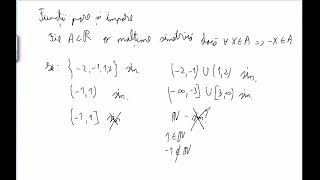 Funcții pare și impare
Fie A⊂ℝ o mulțime simetrică dacă ∀ x∈A => -x∈A
ex: {-2,-1,1,2} sim. (-2,-1) ∪ (1,2) sim.
(-1,1) sim. (-∞,-3] ∪ [3,∞) sim.
(-1,1] sim. ℕ - sim
1∈ℕ
-1∉ℕ